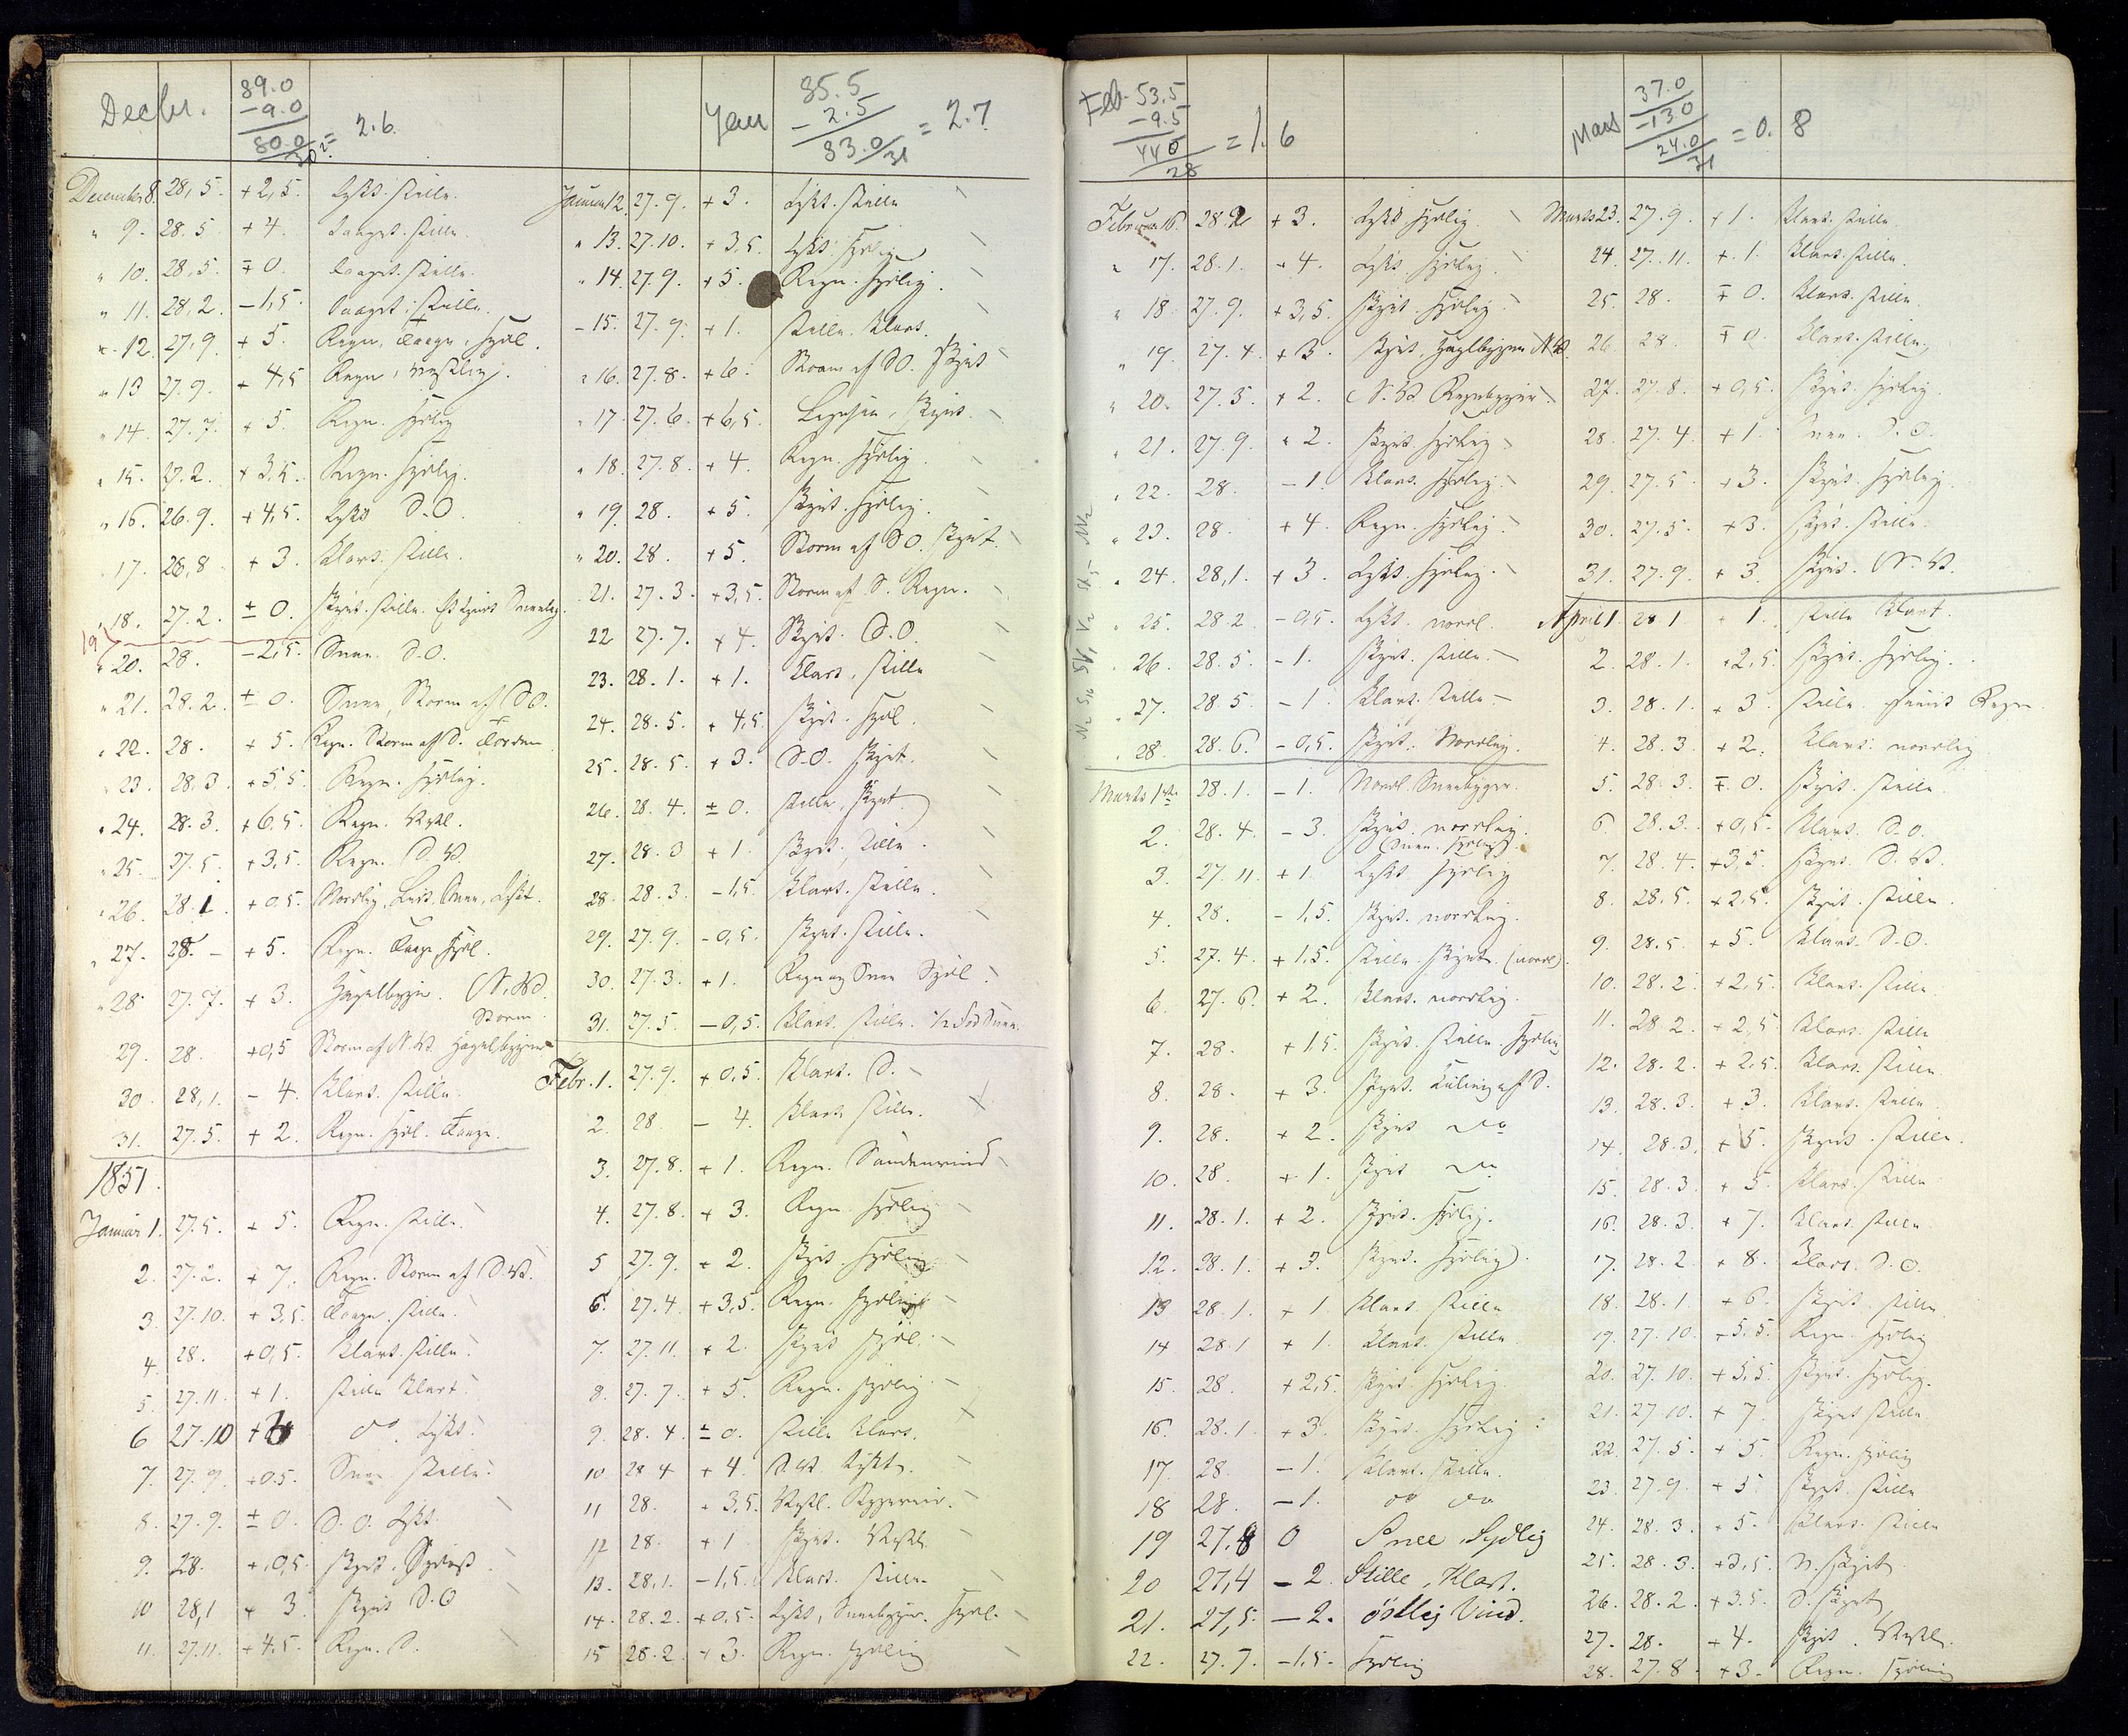 Decbr.
89.0
-9.0
80.0/30 = 2.6.
December 8. 28,5. +2,5. Lyst. stille.
" 9. 28.5 +4. Taaget. stille.
" 10. 28,5. ∓0. Taaget. stille.
" 11. 28,2. -1,5. Taaget. stille.
" 12. 27,9. +5. Regn, Taage, sydl.
" 13 27.9. +4,5 Regn, vestlig.
" 14. 27.7. +5. Regn. sydlig
" 15. 27.2. +3,5. Regn. sydlig.
" 16. 26.9. +4,5. Lyst S.O.
" 17. 26,8 +3. Klart. stille.
" 18. 27.2. ±0. Skyet. stille.
19
" 20. 28. -2,5. Snee. S.O.
" 21. 28.2. ±0. Snee, Storm af S.O.
" 22. 28. +5. Regn. Storm af S. Torden
" 23. 28.3. +5,5 Regn. sydlig.
" 24. 28.3. +6.5. Regn. Vestl.
" 25. 27.5. +3,5. Regn. S.W.
" 26. 28.1. +0.5. Nordlig, Snee, Lyst.
" 27. 28. - +5. Regn. Taage sydl.
" 28. 27.7. +3. Hagelbyger. N.W. Storm
29. 28. +0,5 Storm af N.W. Hagelbyger
30. 28,1. -4. Klart. stille.
31. 27.5. +2. Regn. sydl. Taage.
1851.
Januar 1. 27.5. +5. Regn. stille.
2. 27.2. +7. Regn. Storm af S.W.
3. 27.10. +3,5. Taage. stille.
4. 28. +0,5. Klart. stille.
5. 27.11. +1. stille Klart.
6 27.10 do. Lyst.
7. 27.9. +0.5. Snee. stille.
8. 27.9. ±0. S.O. Lyst.
9. 28. +0,5. Skyet. Sydost
10 28,1 +3. Skyet S.O
11. 27.11. +4.5. Regn. S.
Jan
85.5
-2.5
83.0/31 = 2.7
Januar 12. 27.9. +3. Lyst. stille
" 13. 27.10. +3,5. Lyst. sydlig
" 14. 27.9. +5. Regn. sydlig.
- 15. 27.9. +1. stille. klart.
" 16. 27.8. +6. Storm af SO. Skyet
" 17. 27.6. +6,5. Skyet.
" 18. 27.8. +4. Regn. sydlig.
" 19. 28. +5. Skyet. sydlig.
" 20. 28. +5. Storm af SO. skyet.
21. 27.3. +3,5. Storm af S. Regn.
22 27.7. +4. Skyet. S.O.
23. 28.1. +1. Klart, stille
24. 28.5. +4,5 Skyet. sydl.
25. 28.5. +3. S.O. Skyet.
26. 28.4. ±0. stille, skyet.
27. 28.3 +1. Skyet. stille.
28. 28.3. -1,5. Klart. stille.
29. 27.9. -0,5. Skyet. stille.
30. 27.3. +1. Regn og Snee Sydl.
31. 27.5. -0,5. Klart. stille. 1/2 Fod Snee.
Febr. 1. 27.9. +0,5. Klart. S.
2. 28. -4. Klart stille.
3. 27.8. +1. Regn. Søndenvind
4. 27.8. +3. Regn sydlig
5 27.9. +2. Skyet. sydlig
6. 27.4. +3,5. Regn. sydlig
7. 27.11. +2. Skyet sydl.
8. 27.7. +5. Regn. sydlig
9. 28.4. ±0. stille klart.
10 28 4 +4. S.W. Lyst.
11 28. +3,5. Vestl. Bygeveir.
12 28. +1 Skyet. Vestl.
13. 28,1. -1,5. Klart. stille.
14. 28.2. +0.5. Lyst, Sneebyger. sydl.
15 28.2. +3. Regn. sydlig
Feb. 53.5
-9.5
44.0/28 = 1.6
Februar 16. 28.2 +3. Lyst sydlig.
" 17. 28.1. +4. Lyst. sydlig.
" 18. 27.9. +3,5. Skyet. sydlig.
" 19. 27.4. +3. Skyet, Haglbyger N.W.
" 20. 27.3. +2. N.W. Regnbyger
" 21. 27.9. +2. Skyet. sydlig.
" 22. 28. -1. Klart. sydlig.
" 23. 28 +4. Regn. sydlig.
" 24. 28,1. +3. Lyst. sydlig.
" 25. 28.2. -0,5. Lyst. nordl.
" 26. 28.5. -1. Skyet. stille.
" 27. 28.5 -1. Klart. stille
" 28. 28.6. -0,5. Skyet. Nordlig.
Marts 1ste 28.1. -1. Nordl. Sneebyger.
2. 28.4. -3. Skyet. nordlig.
(Snee. sydlig).
3. 27.11. +1. Lyst sydlig
4. 28. -1,5. Skyet. nordlig.
5. 27.4. +1,5. stille skyet. (nordl).
6. 27.6. +2. Klart. nordlig.
7. 28. +1.5. Skyet. stille. sydlig
8. 28. +3. Skyet. Kuling af S.
9. 28. +2. Skyet do
10. 28. +1. Skyet do
11. 28.1. +2. Skyet. sydlig.
12. 28.1. +3. Skyet. sydlig.
13 28.1. +1. Klart. stille
14 28.1 +1. Klart. stille
15. 28. +2,5. Skyet sydlig.
16. 28.1. +3. Skyet. sydlig.
17. 28. -1. Klart. stille.
18 28. -1. do do
19 27.8 0 Snee, Sydlig
20 27,4 -2. Stille, Klart.
21. 27,5. -2. Östlig Vind.
22. 27.7. -1,5. Sydlig
Mars
37.0
-13.0
24.0/31 = 0.8
Marts 23. 27.9. +1. Klart. stille
24. 27.11. +1. Klart. stille.
25. 28. ∓0. Klart. stille.
26. 28 ∓0. Klart. stille.
27. 27.8. +0,5. Skyet. sydlig.
28. 27.4. +1. Snee. S.O.
29. 27.5. +3. Skyet. sydlig.
30. 27.5. +3. Skyet. stille.
31. 27.9. +3. Skyet. N.W.
April 1. 28 1 +1. stille Klart.
2. 28.1. +2,5. Skyet. sydlig.
3. 28.1. +3. stille Regn
4. 28.3. +2. Klart. nordlig
5. 28.3. ∓0. Skyet. stille
6. 28.3. +0,5. Klart. S.O.
7. 28.4. +3,5. Skyet. S.W.
8. 28.5. +2,5. Skyet. stille.
9. 28.5 +5. Klart. S.O.
10. 28.2. +2,5. Klart. stille
11. 28.2. +2,5 Klart. stille
12. 28.2. +2,5. Klart. stille
13. 28.3. +3. Klart. stille
14. 28.3. +5. Skyet. stille.
15. 28.3. +5. Klart. stille
16. 28.3. +7. Klart. stille
17. 28.2 +8. Klart. S.O.
18. 28.1 +6. Skyet. stille
19. 27.10. +5.5. Regn. sydlig
20. 27.10. +5,5. Skyet. sydlig.
21. 27.10. +7. Skyet stille
22. 27.5. +5 Regn. sydlig
23. 27.9. +5 Skyet. stille
24. 28.3. +5. Klart. stille
25. 28.3. +3,5. N. skyet
26. 28.2. +3.5. S. skyet
27. 28. +4. Skyet. Vestl.
28. 27.8. +3. Regn. sydlig